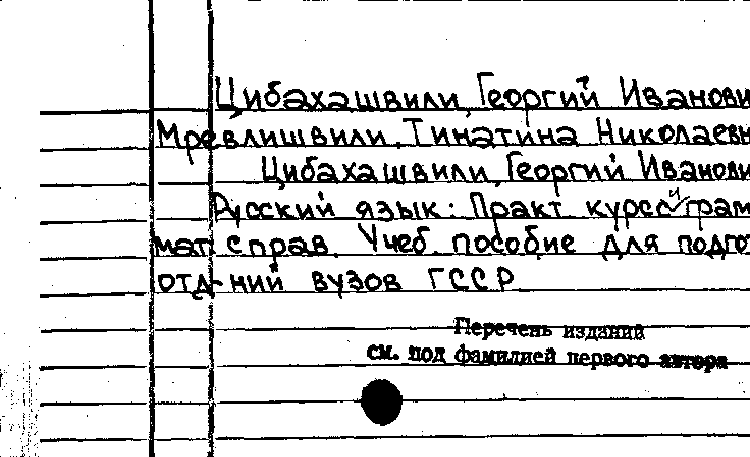 Цибахашвили, Георгий Иванови
Мревлишвили, Тинатина Николаевн
Цибахашвили, Георгий Иванови
Русский язык: Практ курс и грам
мат справ. Учеб. пособие для подго
отд-ний вузов ГССР
Перечень изданий
см. под фамилией первого автора